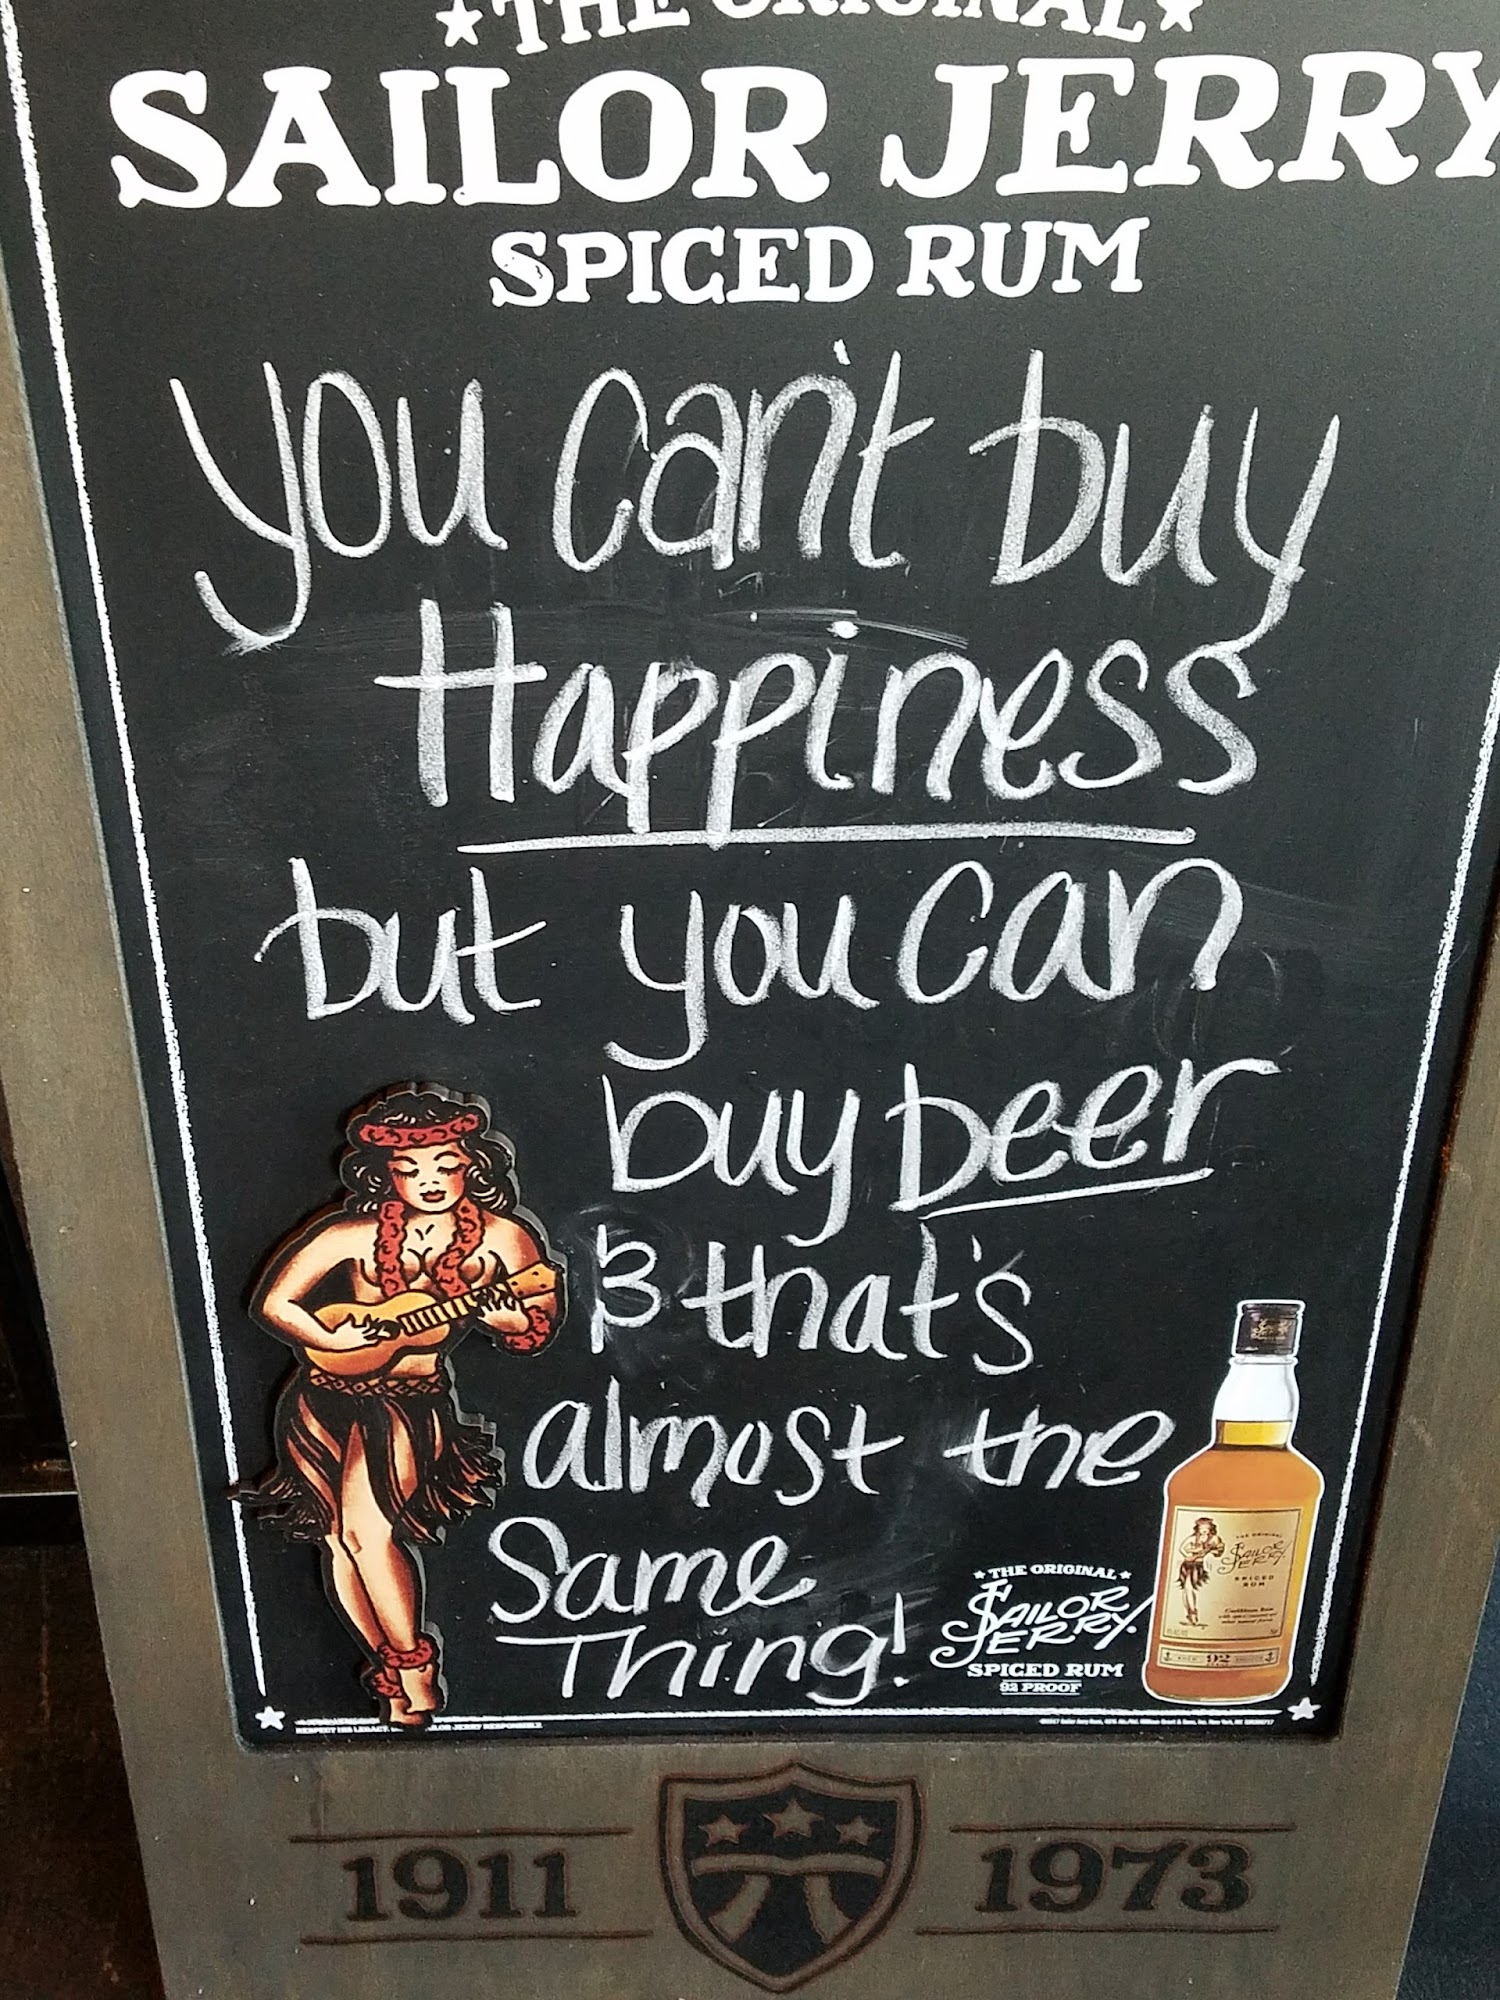 ★THE ORIGINAL★
SAILOR JERRY
SPICED RUM
you can't buy
Happiness
but you can
buy beer
& that's
almost the
Same
Thing!
★THE ORIGINAL★
SAILOR
JERRY
SPICED RUM
92 PROOF
THE ORIGINAL
SAILOR
JERRY
SPICED
RUM
92
1911 1973